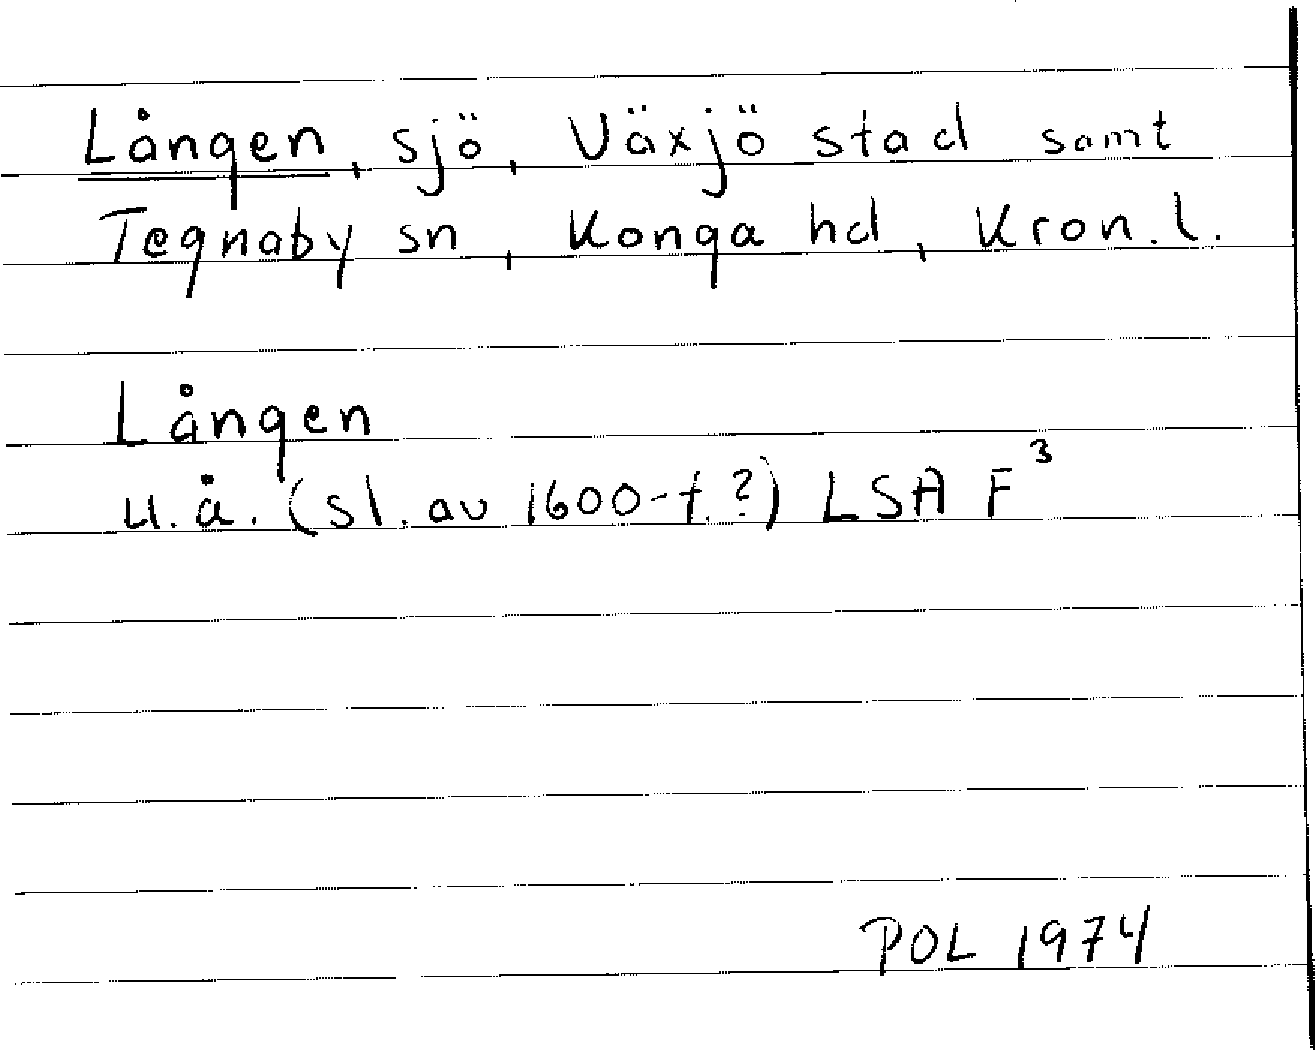 Lången, sjö, Växjö stad samt
Tegnaby sn, Konga hd, Kron. l.
Lången
u.å. (sl. av 1600-t.?) LSA F³
POL 1974